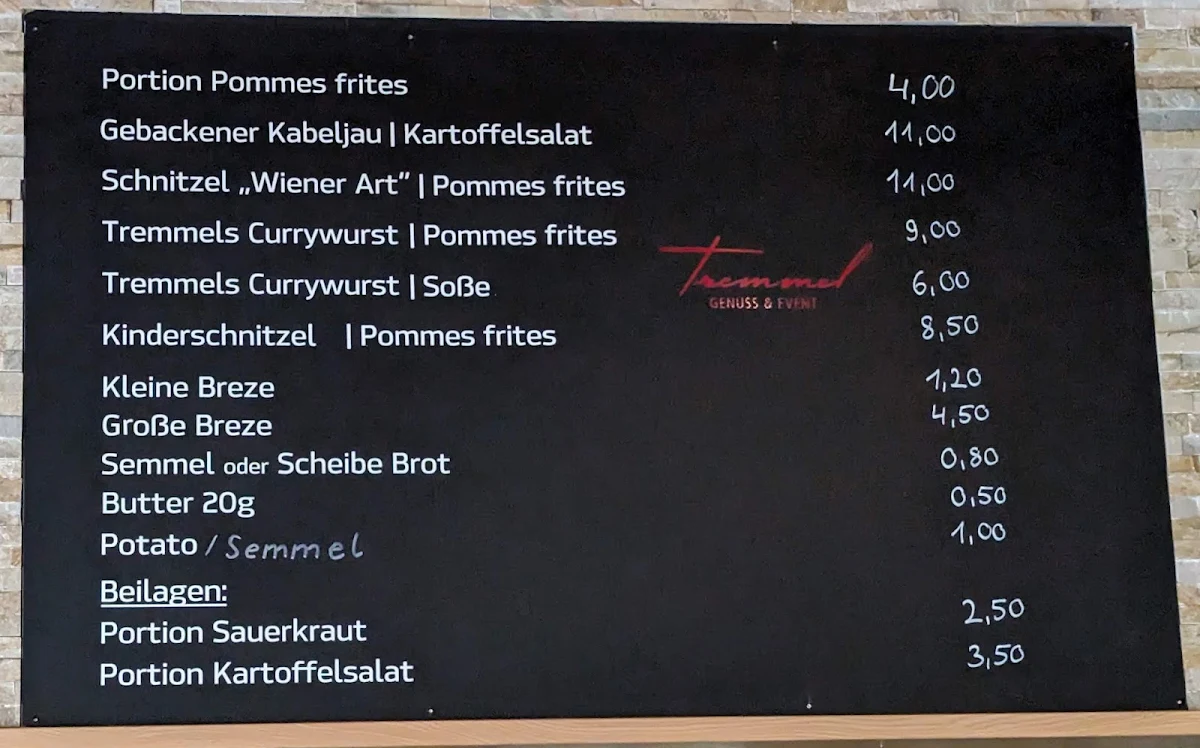 Portion Pommes frites 4,00
Gebackener Kabeljau | Kartoffelsalat 11,00
Schnitzel „Wiener Art“ | Pommes frites 11,00
Tremmels Currywurst | Pommes frites 9,00
Tremmel
GENUSS & EVENT
Tremmels Currywurst | Soße 6,00
Kinderschnitzel | Pommes frites 8,50
Kleine Breze 1,20
Große Breze 4,50
Semmel oder Scheibe Brot 0,80
Butter 20g 0,50
Potato / Semmel 1,00
Beilagen:
Portion Sauerkraut 2,50
Portion Kartoffelsalat 3,50